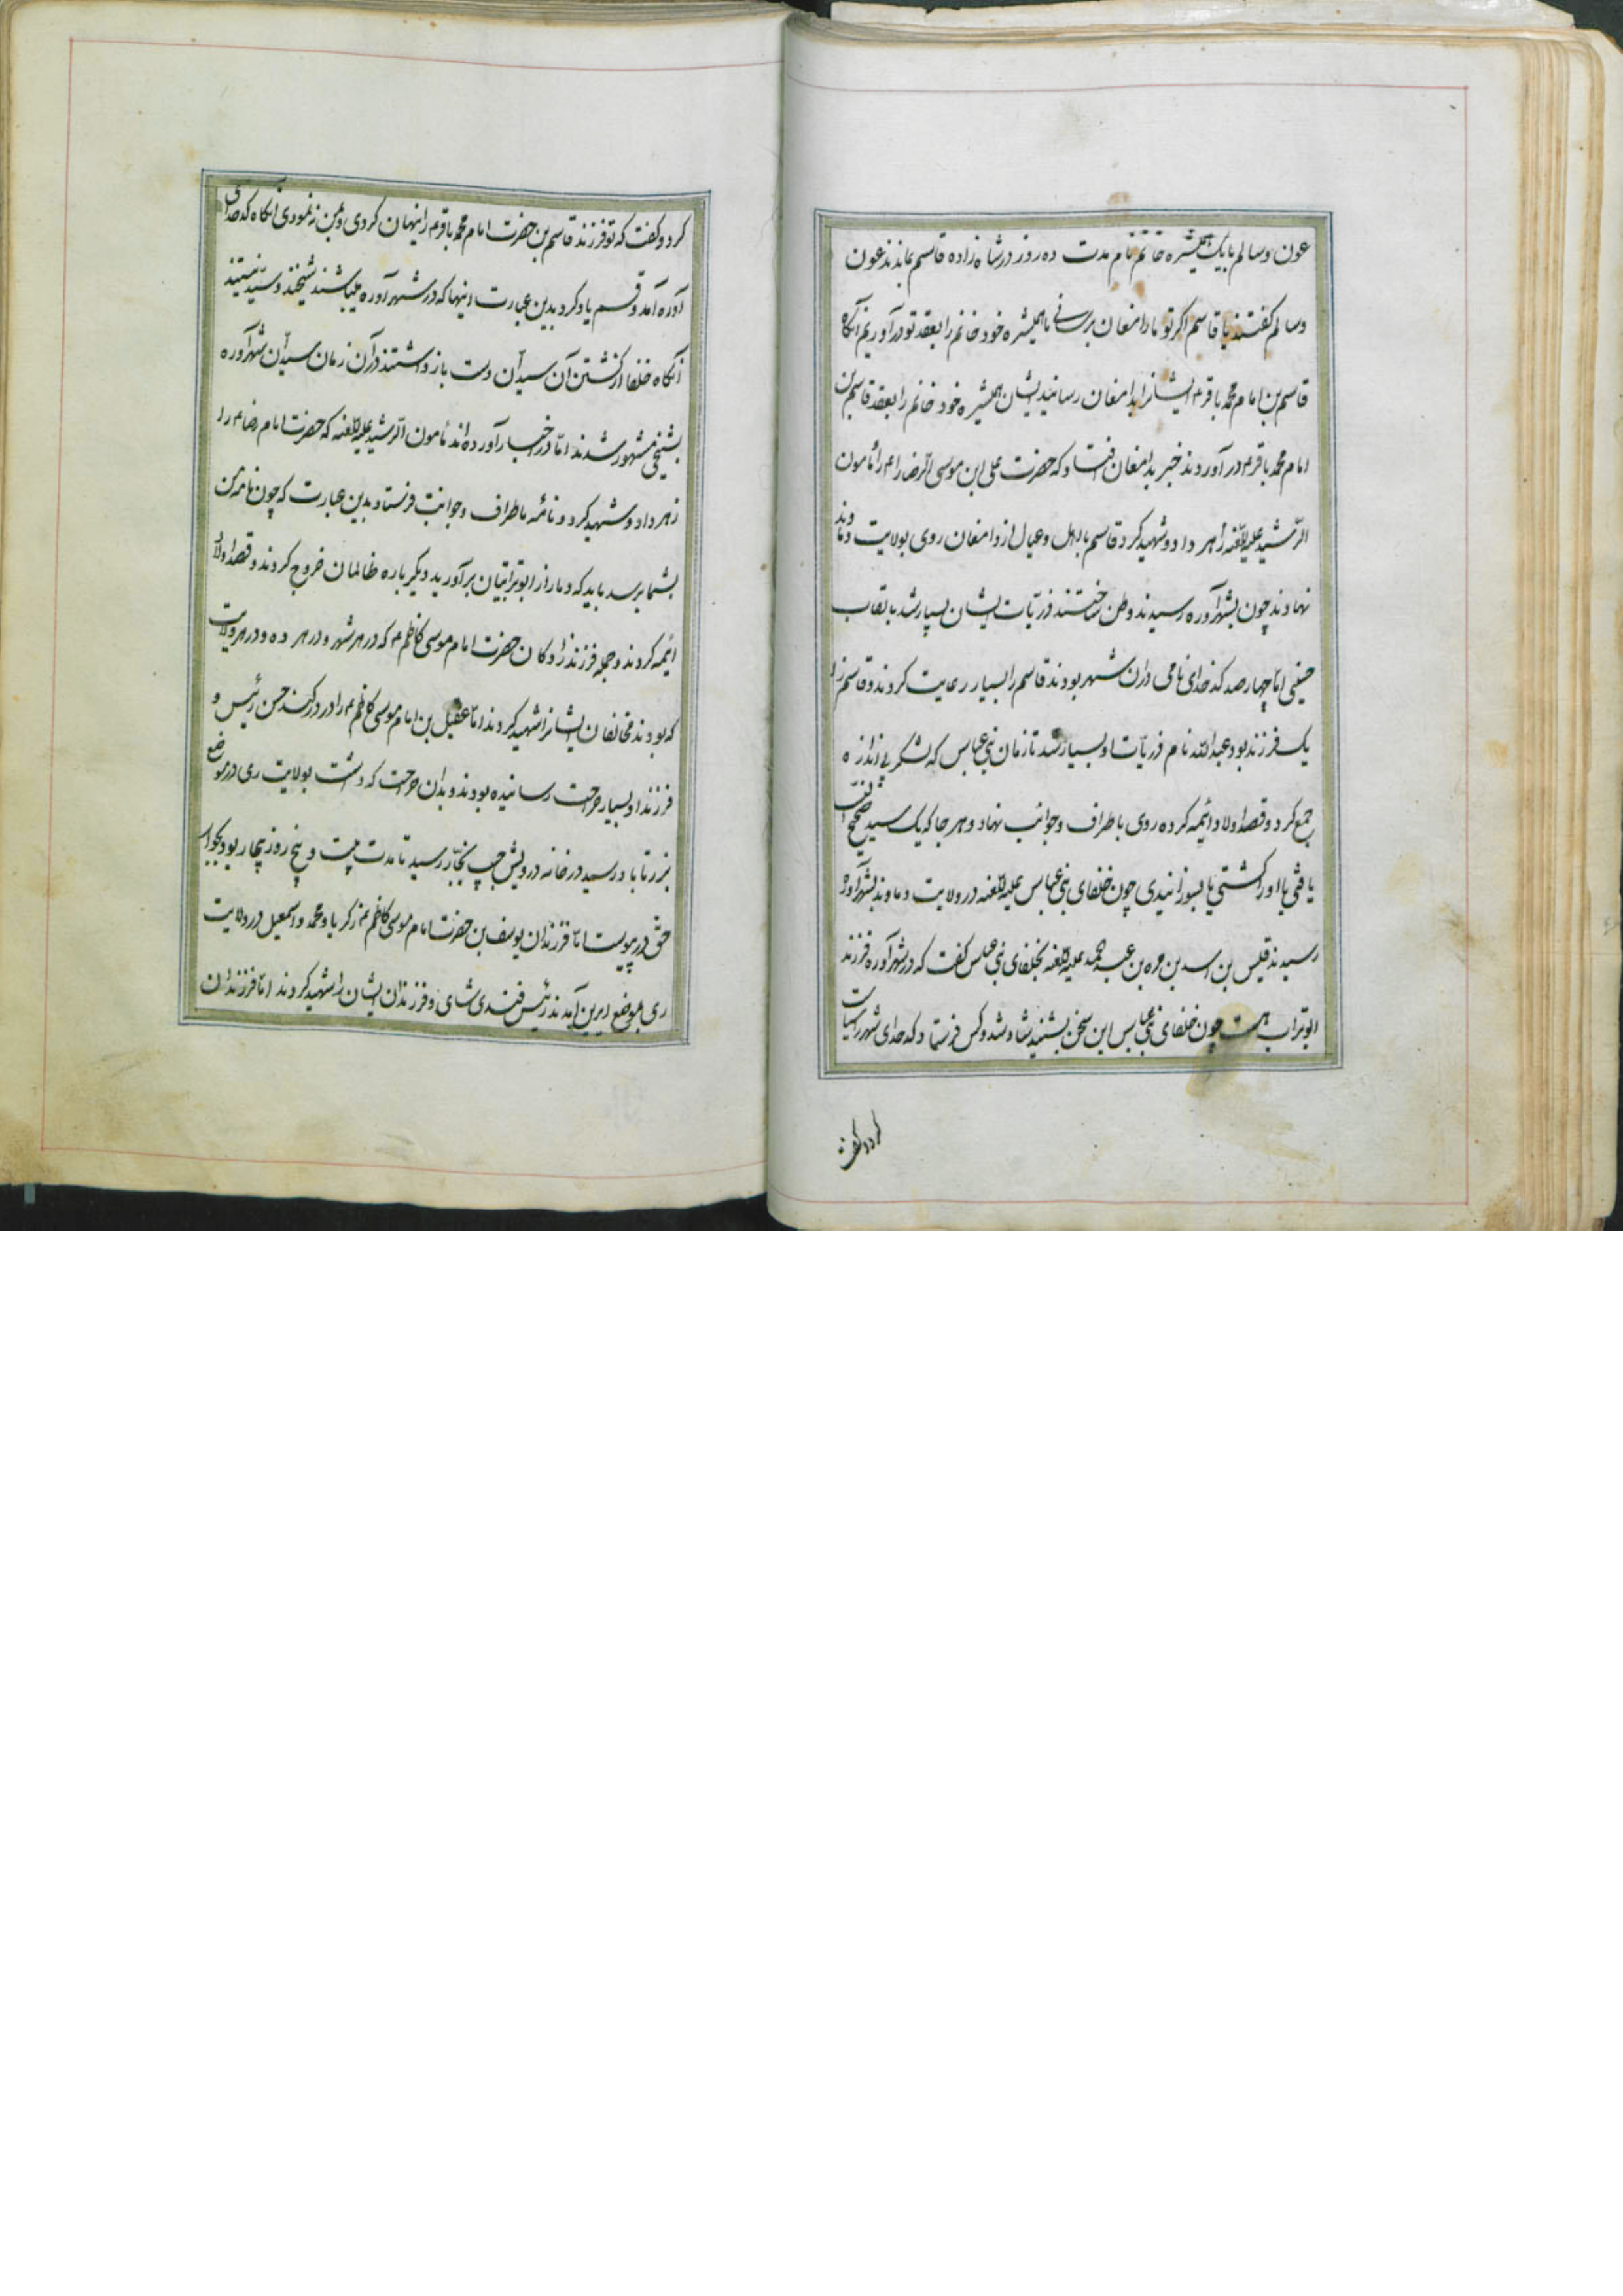 عون و سالم با یک همشیره خانم نام مدت ده روز در شاهزاده قاسم بماندند عون
و سالم گفتند یا قاسم اگر تو ما را بدامغان برسانی ما همشیره خود خانم را بعقد تو در آوریم آنگاه
قاسم بن امام محمد باقر ع ایشانرا بدامغان رسانید ایشان همشیره خود خانم را بعقد قاسم بن
امام محمد باقر ع در آوردند خبر بدامغان افتاد که حضرت علی ابن موسی الرضا را ع مأمون
الرشید علیه اللعنه زهر داد و شهید کرد قاسم با اهل و عیال از دامغان روی بولایت دماوند
نهادند چون بشهر آوره رسیدند وطن ساختند ذریّات ایشان بسیار شد بالقاب
حسینی امّا چهار صد کدخدای نامی در آن شهر بودند قاسم را بسیار رعایت کردند و قاسم را
یک فرزند بود عبدالله نام ذریّات او بسیار شد تا زمان بنی عباس که لشکر بی اندازه
جمع کرد و قصد اولاد ائمه کرده روی باطراف و جوانب نهاد و هر جا که یک سید صحیح النسب
یافتی یا او را کشتی یا بسوزانیدی چون خلفای بنی عباس علیه اللعنه در ولایت دماوند بشهر آوره
رسیدند قلیس بن اسد بن مره بن علیه اللعنه بخلفای بنی عباس گفت که در شهر آوره فرزند
ابوتراب هست چون خلفای بنی عباس این سخن بشنید شاد شد و کس فرستاد و کدخدای شهر را سیاست
کرد و گفت
کرد و گفت که تو فرزند قاسم بن حضرت امام محمد باقر ع را پنهان کردی و بمن ننمودی آنگاه کدخدای
آوره آمد و قسم یاد کرد بدین عبارت اینها که در شهر آوره میباشند شیخند و سیّد نیستند
آنگاه خلفا از کشتن آن سیدان دست باز داشتند در آن زمان سیدان شهر آوره
بشیخی مشهور شدند امّا در اخبار آورده اند مأمون الرشید علیه اللعنه که حضرت امام رضا ع را
زهر داد و شهید کرد و نامه باطراف و جوانب فرستاد بدین عبارت که چون نامه من
بشما برسد باید که دمار از ابوترابیان برآورید دیگر باره ظالمان خروج کردند و قصد اولاد
ائمه کردند و جمله فرزندزادگان حضرت امام موسی کاظم ع که در هر شهر و در هر ده و در هر ولایت
که بودند مخالفان ایشانرا شهید کردند امّا عقیل بن امام موسی کاظم ع را در در کند حسن رئیس و
فرزند او بسیار جراحت رسانیده بودند و بدان جراحت که داشت بولایت ری در موضع
رسید در خانه درویش حبیب نجّار رسید تا مدت بیست و پنج روز بیمار بود بجوار
حق در پیوست امّا فرزندان یوسف بن حضرت امام موسی کاظم ع زکریا و محمد و اسمعیل در ولایت
ری بموضع آمدند رئیس و فرزندان ایشان را شهید کردند امّا فرزندان